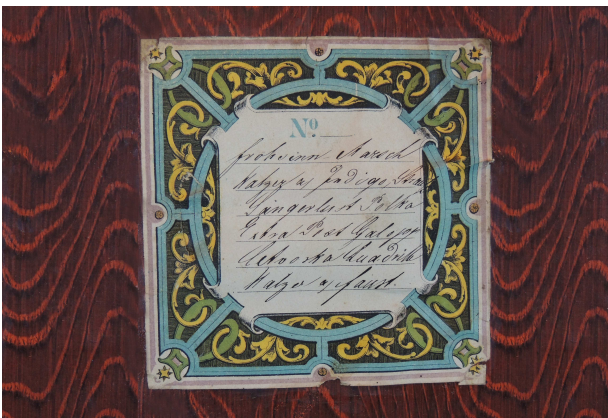 No
Frohsinn Marsch
Walzer a/ Indigo, Strauß
Sängerlust Polka
Extra Post Galopp
Quadrille
Walzer a/ Faust.